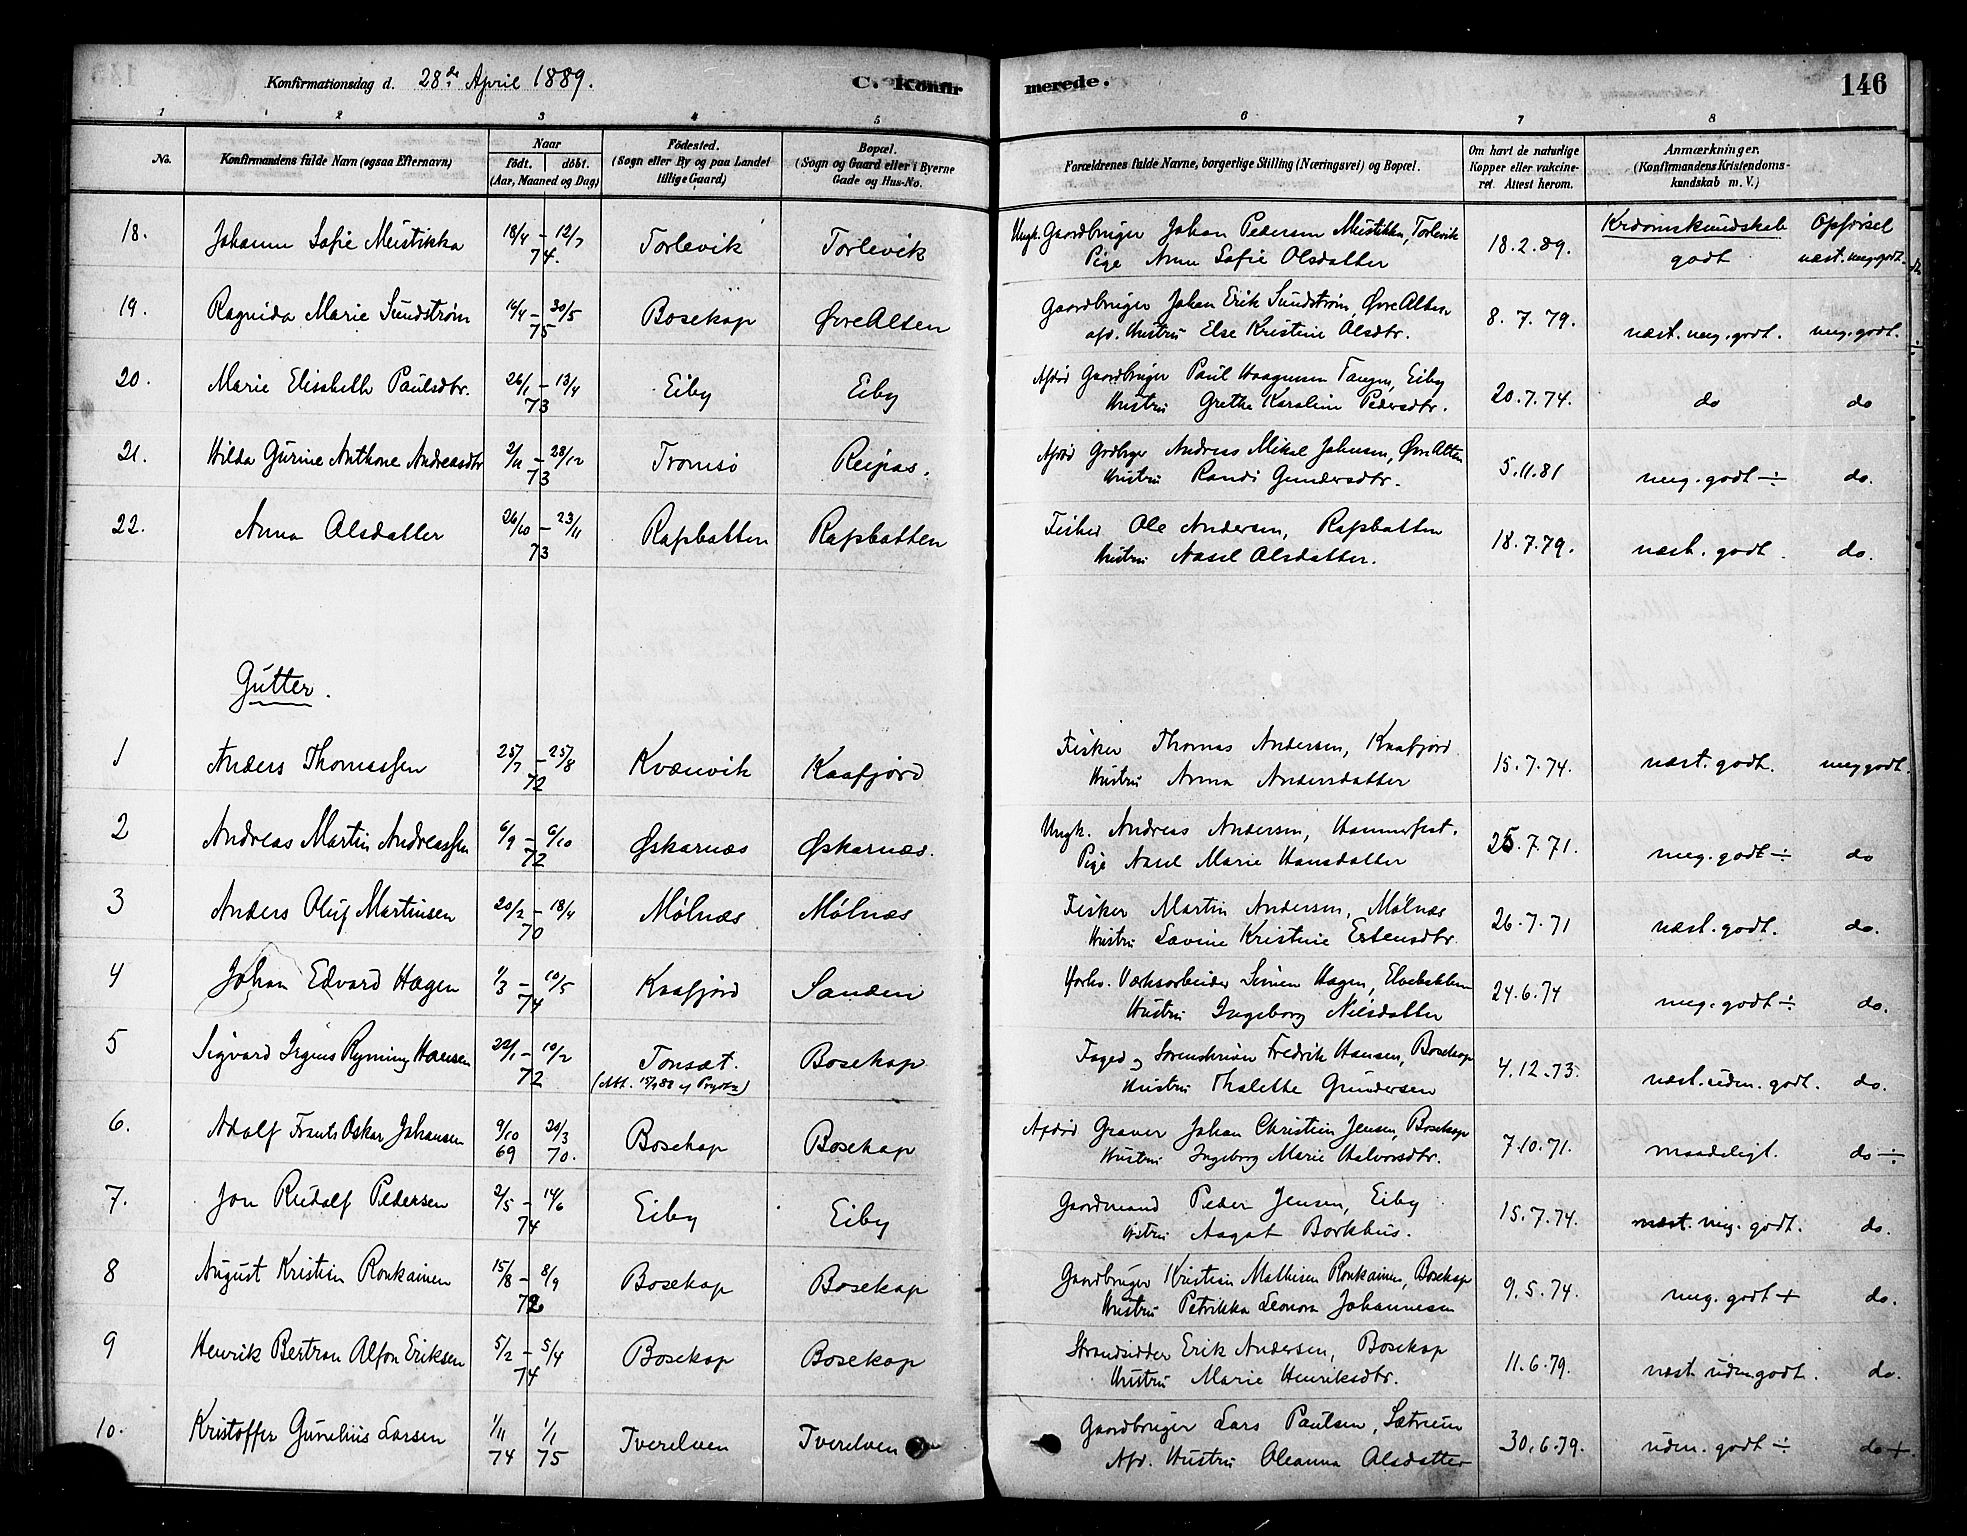 Konfirmationsdag d. 28de April 1889. C. Konfir merede. 146
1 2 3 4 5 6 7 8
No. Konfirmandens fulde Navn (ogsaa Efternavn) Naar født. døbt. (Aar, Maaned og Dag) Fødested. (Sogn eller By og paa Landet tillige Gaard) Bopæl. (Sogn og Gaard eller i Byerne Gade og Hus-No. Forældrenes fulde Navne, borgerlige Stilling (Næringsvei) og Bopæl. Om havt de naturlige Kopper eller vakcineret. Attest herom. Anmærkninger. (Konfirmandens Kristendomskundskab m. V.)
Krdomskundskab Opførsel
18. Johanne Sofie Meistikka 18/4 – 12/7 74. Torlevik Torlevik Ungk. Gaardbruger Johan Pedersen Meistikka, Torlevik 18.2.89. godt næst. meg. godt.
Pige Anne Sofie Olsdatter
19. Ragnida Marie Sundstrøm 19/4 – 30/5 75 Bosekop Øvre Alten Gaardbruger Johan Erik Sundstrøm, Øvre Alten 8.7.79. næst. meg. godt. meg. godt.
afd. Hustru Else Kristine Olsdtr.
20. Marie Elisabeth Paulsdtr. 26/1 – 13/4 73 Eiby Eiby Afdød Gaardbruger Paul Haagensen Tangen, Eiby 20.7.74. do do
Hustru Grethe Karoline Pedersdtr.
21. Hilda Gurine Anthone Andreasdtr 2/11 – 28/12 73 Tromsø Reipas. Afdød Grdbrger Andreas Mikal Johnsen, Øvre Alten 5.11.81 meg. godt ÷ do.
Hustru Randi Gundersdtr.
22. Anna Olsdatter 26/10 – 23/11 73 Rafsbatten Rafsbatten Fisker Ole Andersen, Rafsbatten 18.7.79. næst. godt. do.
Hustru Aasel Olsdatter.
Gutter.
1 Anders Thomassen 25/7 – 25/8 72 Kvænvik Kaafjord Fisker Thomas Andersen, Kaafjord 15.7.74. næst. godt. meg godt.
Hustru Anna Andersdatter
2 Andreas Martin Andreassen 6/9 – 6/10 72 Øskarnæs Øskarnæs. Ungk. Andreas Andersen, Hammerfest. 25.7.71. meg. godt ÷ do
Pige Aasel Marie Hansdatter
3 Anders Oluf Martinsen 20/2 – 18/4 70 Mølnæs Mølnæs Fisker Martin Andersen, Mølnæs 26.7.71 næst. godt. do.
Hustru Lavine Kristine Estensdtr.
4 Johan Edvard Hagen 1/3 – 10/5 74 Kaafjord Sanden Forhv. Værksarbeider Simen Hagen, Elvebakken 24.6.74 meg. godt ÷ do.
Hustru Ingeborg Nilsdatter
5 Sigvard Irgens Rynning Hansen 22/1 – 10/2 72 Tønsæt. Bosekop Foged og Sorenskriver Fredrik Hansen, Bosekop 4.12.73. næst. udm. godt. do.
Hustru Thalette Gundersen
6. Adolf Frants Oskar Johansen 9/10 69 20/3 70. Bosekop Bosekop Afdød Graver Johan Christian Jensen, Bosekop 7.10.71. maadeligt. do ÷
Hustru Ingeborg Marie Halvorsdtr.
7. Jon Rudolf Pedersen 2/5 – 14/6 74 Eiby Eiby Gaardmand Peder Jensen, Eiby 15.7.74. næst. meg. godt. do.
Hstru Aagot Borkhus.
8 August Kristian Ronkainen 15/8 – 8/9 72 Bosekop Bosekop Gaardbruger Kristian Mathisen Ronkainen, Bosekop 9.5.74. meg. godt + do.
Hustru Petrikka Leonora Johannesen
9 Henrik Bertran Alfon Eriksen 5/2 – 5/4 74 Bosekop Bosekop Strandsidder Erik Andersen, Bosekop 11.6.79. næst. udm godt. do.
Hustru Marie Henriksdtr.
10. Kristoffer Gunelius Larsen 1/11 74 1/1 75 Tverelven Tverelven Gaardbruger Lars Paulsen, 30.6.79. udm. godt ÷ do +.
Afd. Hustru Oleanna Olsdatter